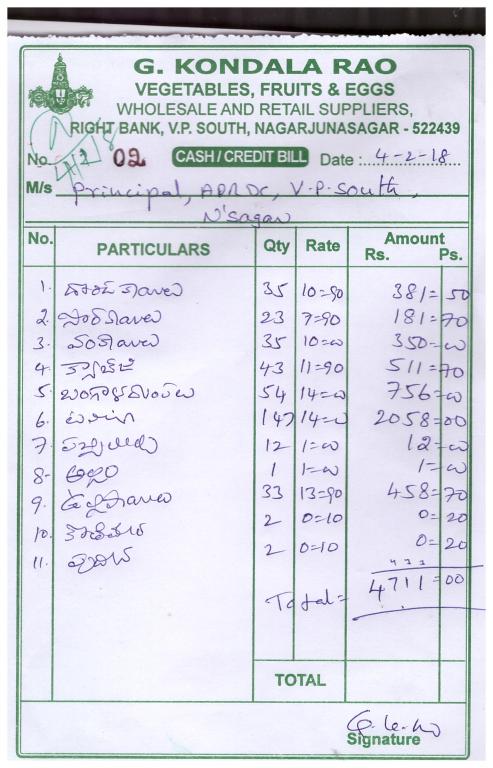 G. KONDALA RAO
VEGETABLES, FRUITS & EGGS
WHOLESALE AND RETAIL SUPPLIERS,
RIGHT BANK, V.P. SOUTH, NAGARJUNASAGAR - 522439
No. 02 CASH / CREDIT BILL Date : 4-2-18
M/s Principal, APRDC, V.P. South,
N'Sagar
No. PARTICULARS Qty Rate Amount
Rs. Ps.
1. 35 10=90 381=50
2. 23 7=90 181=70
3. వంకాయలు 35 10=00 350=00
4. క్యాబేజి 43 11=90 511=70
5. బంగాళదుంపలు 54 14=00 756=00
6. టమాటా 147 14=00 2058=00
7. 12 1=00 12=00
8. అల్లం 1 1=00 1=00
9. ఉల్లిపాయలు 33 13=90 458=70
10. కొత్తిమీర 2 0=10 0=20
11. పుదీన 2 0=10 0=20
Total= 4711=00
TOTAL
Signature